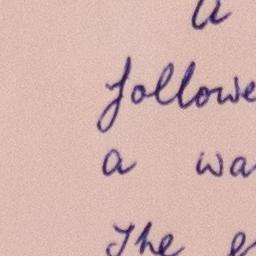 a
followe
a wa
The